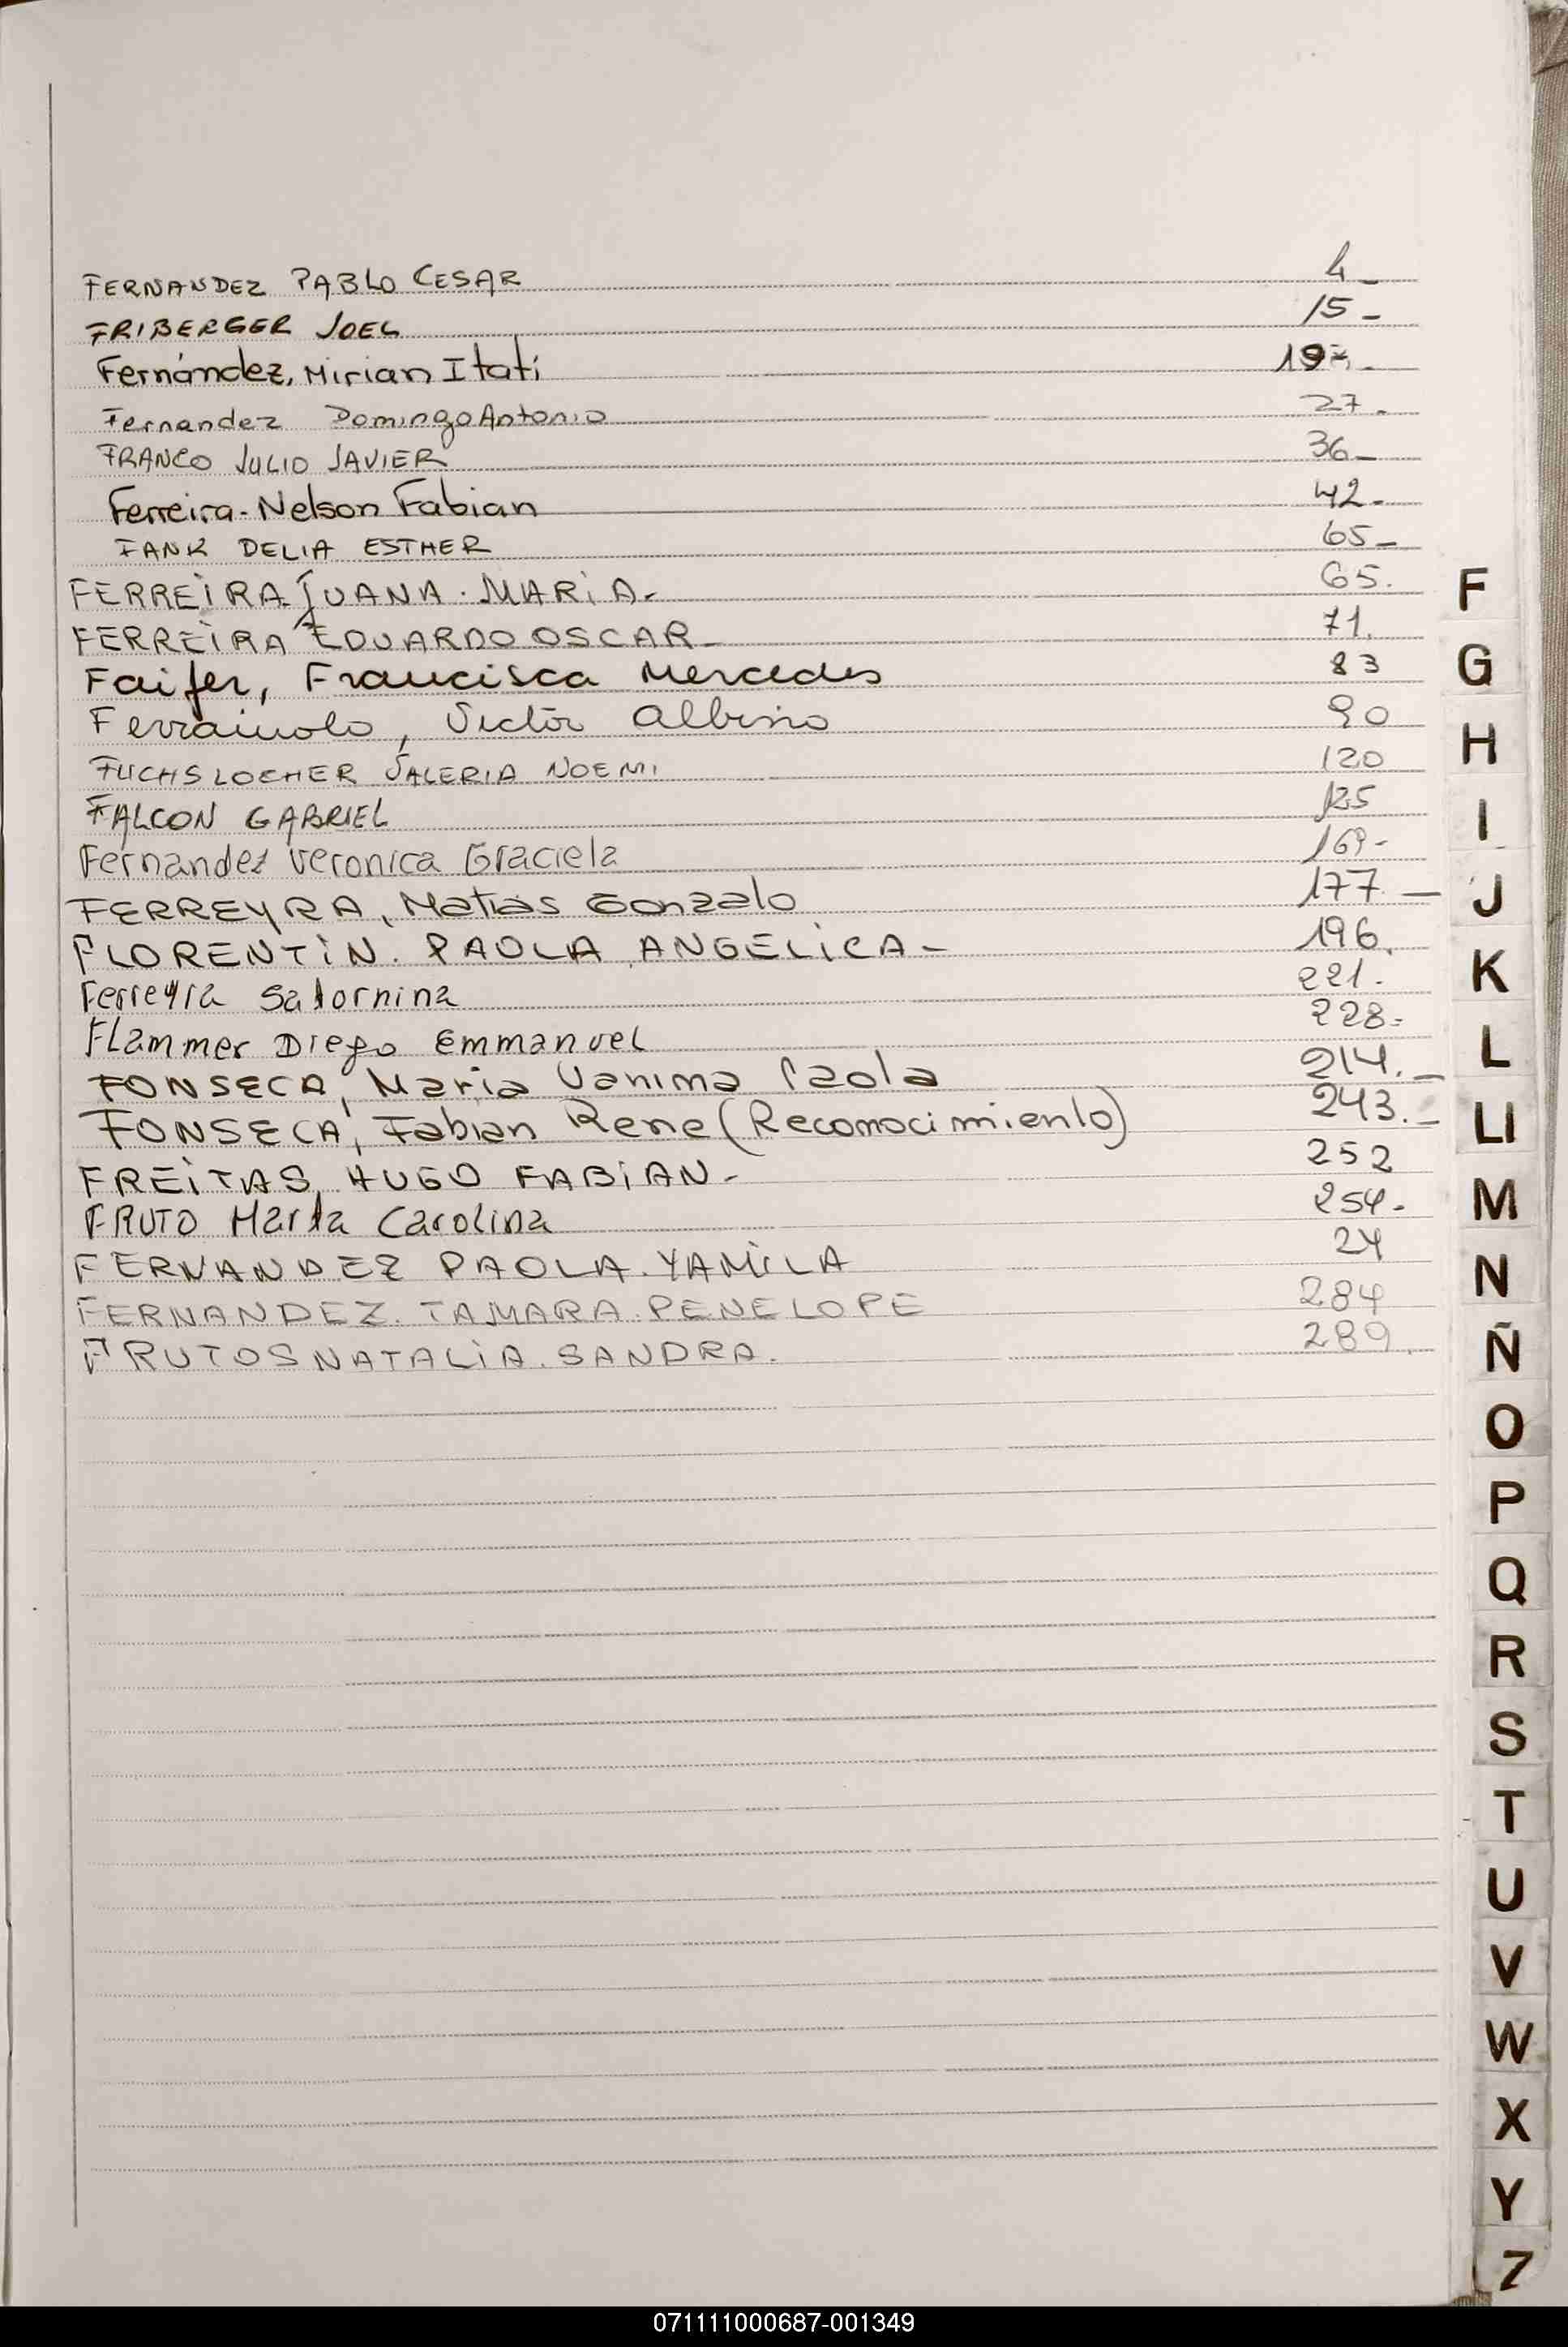 FERNANDEZ PABLO CESAR 4-
FRIBERGER JOEL 15-
Fernández, Mirian Itatí
Fernandez Domingo Antonio 27.
FRANCO JULIO JAVIER 36-
Ferreira - Nelson Fabian 42-
FANK DELIA ESTHER 65-
FERREIRA JUANA. MARIA- 65.
FERREIRA EDUARDO OSCAR- 71.
Faifer, Francisca Mercedes 83
Ferraiuolo, Victor Albino 90
FUCHSLOCHER VALERIA NOEMI 120
FALCON GABRIEL 125
Fernandez Veronica Graciela 169-
FERREYRA, Matias Gonzalo 177.-
FLORENTIN. PAOLA ANGELICA- 196.
Ferreyra Satornina 221.
Flammer Diego Emmanuel 228-
FONSECA, Maria Vanima Paola 214.-
FONSECA, Fabian Rene (Reconocimiento) 243.-
FREITAS, HUGO FABIAN- 252
FRUTO Marta Carolina 254-
FERNANDEZ PAOLA. YAMILA 24
FERNANDEZ. TAMARA. PENELOPE 284
FRUTOS NATALIA. SANDRA. 289.
F
G
H
I
J
K
L
Ll
M
N
Ñ
O
P
Q
R
S
T
U
V
W
X
Y
Z
071111000687-001349